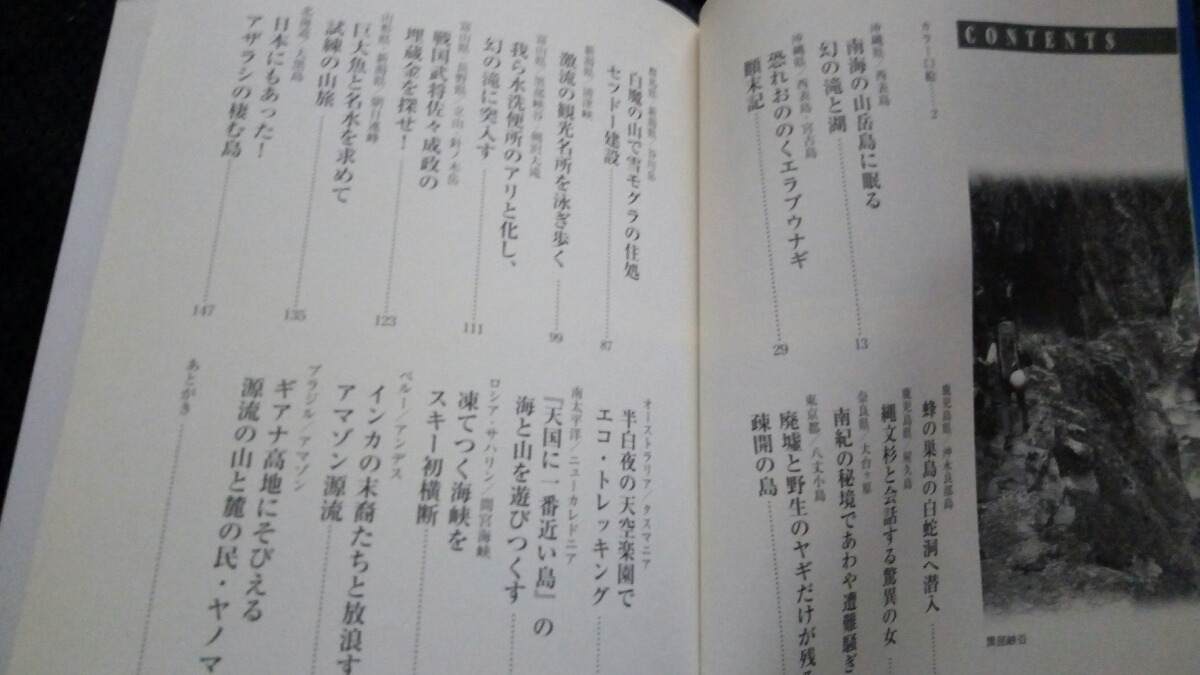 CONTENTS
カラー口絵……2
沖縄県/西表島
南海の山岳島に眠る
幻の滝と湖……13
沖縄県/西表島・宮古島
恐れおののくエラブウナギ
顛末記……29
鹿児島県/沖永良部島
蜂の巣島の白蛇洞へ潜入……
鹿児島県/屋久島
縄文杉と会話する驚異の女……
奈良県/大台ヶ原
南紀の秘境であわや遭難騒ぎ
東京都/八丈小島
廃墟と野生のヤギだけが残
疎開の島……
黒部峡谷
群馬県・新潟県/谷川岳
白魔の山で雪モグラの住処
セツドー建設……87
新潟県/清津峡
激流の観光名所を泳ぎ歩く……99
富山県/黒部峡谷・剱沢大滝
我ら水洗便所のアリと化し、
幻の滝に突入す……111
富山県・長野県/立山・針ノ木岳
戦国武将佐々成政の
埋蔵金を探せ!……123
山形県・新潟県/朝日連峰
巨大魚と名水を求めて
試練の山旅……135
北海道/大黒島
日本にもあった!
アザラシの棲む島……147
オーストラリア/タスマニア
半白夜の天空楽園で
エコ・トレッキング……
南太平洋/ニューカレドニア
『天国に一番近い島』の
海と山を遊びつくす……
ロシア・サハリン/間宮海峡
凍てつく海峡を
スキー初横断……
ペルー/アンデス
インカの末裔たちと放浪す
アマゾン源流……
ブラジル/アマゾン
ギアナ高地にそびえる
源流の山と麓の民・ヤノマ
あとがき……